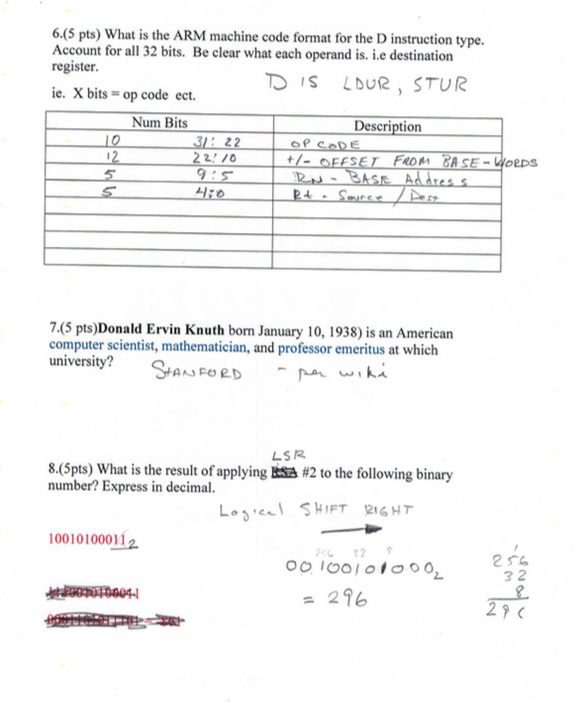 6.(5 pts) What is the ARM machine code format for the D instruction type.
Account for all 32 bits. Be clear what each operand is. i.e destination
register.
D IS LDUR, STUR
ie. X bits = op code ect.
Num Bits Description
10 31: 22 OP CODE
12 22:10 +/- OFFSET FROM BASE - WORDS
5 9:5 RN - BASE Address
5 4:0 Rt - Source / Dest
7.(5 pts)Donald Ervin Knuth born January 10, 1938) is an American
computer scientist, mathematician, and professor emeritus at which
university?
STANFORD - per wiki
LSR
8.(5pts) What is the result of applying #2 to the following binary
number? Express in decimal.
Logical SHIFT RIGHT
10010100011 2
256 32 8
00100101000 2
= 296
1
256
32
8
296